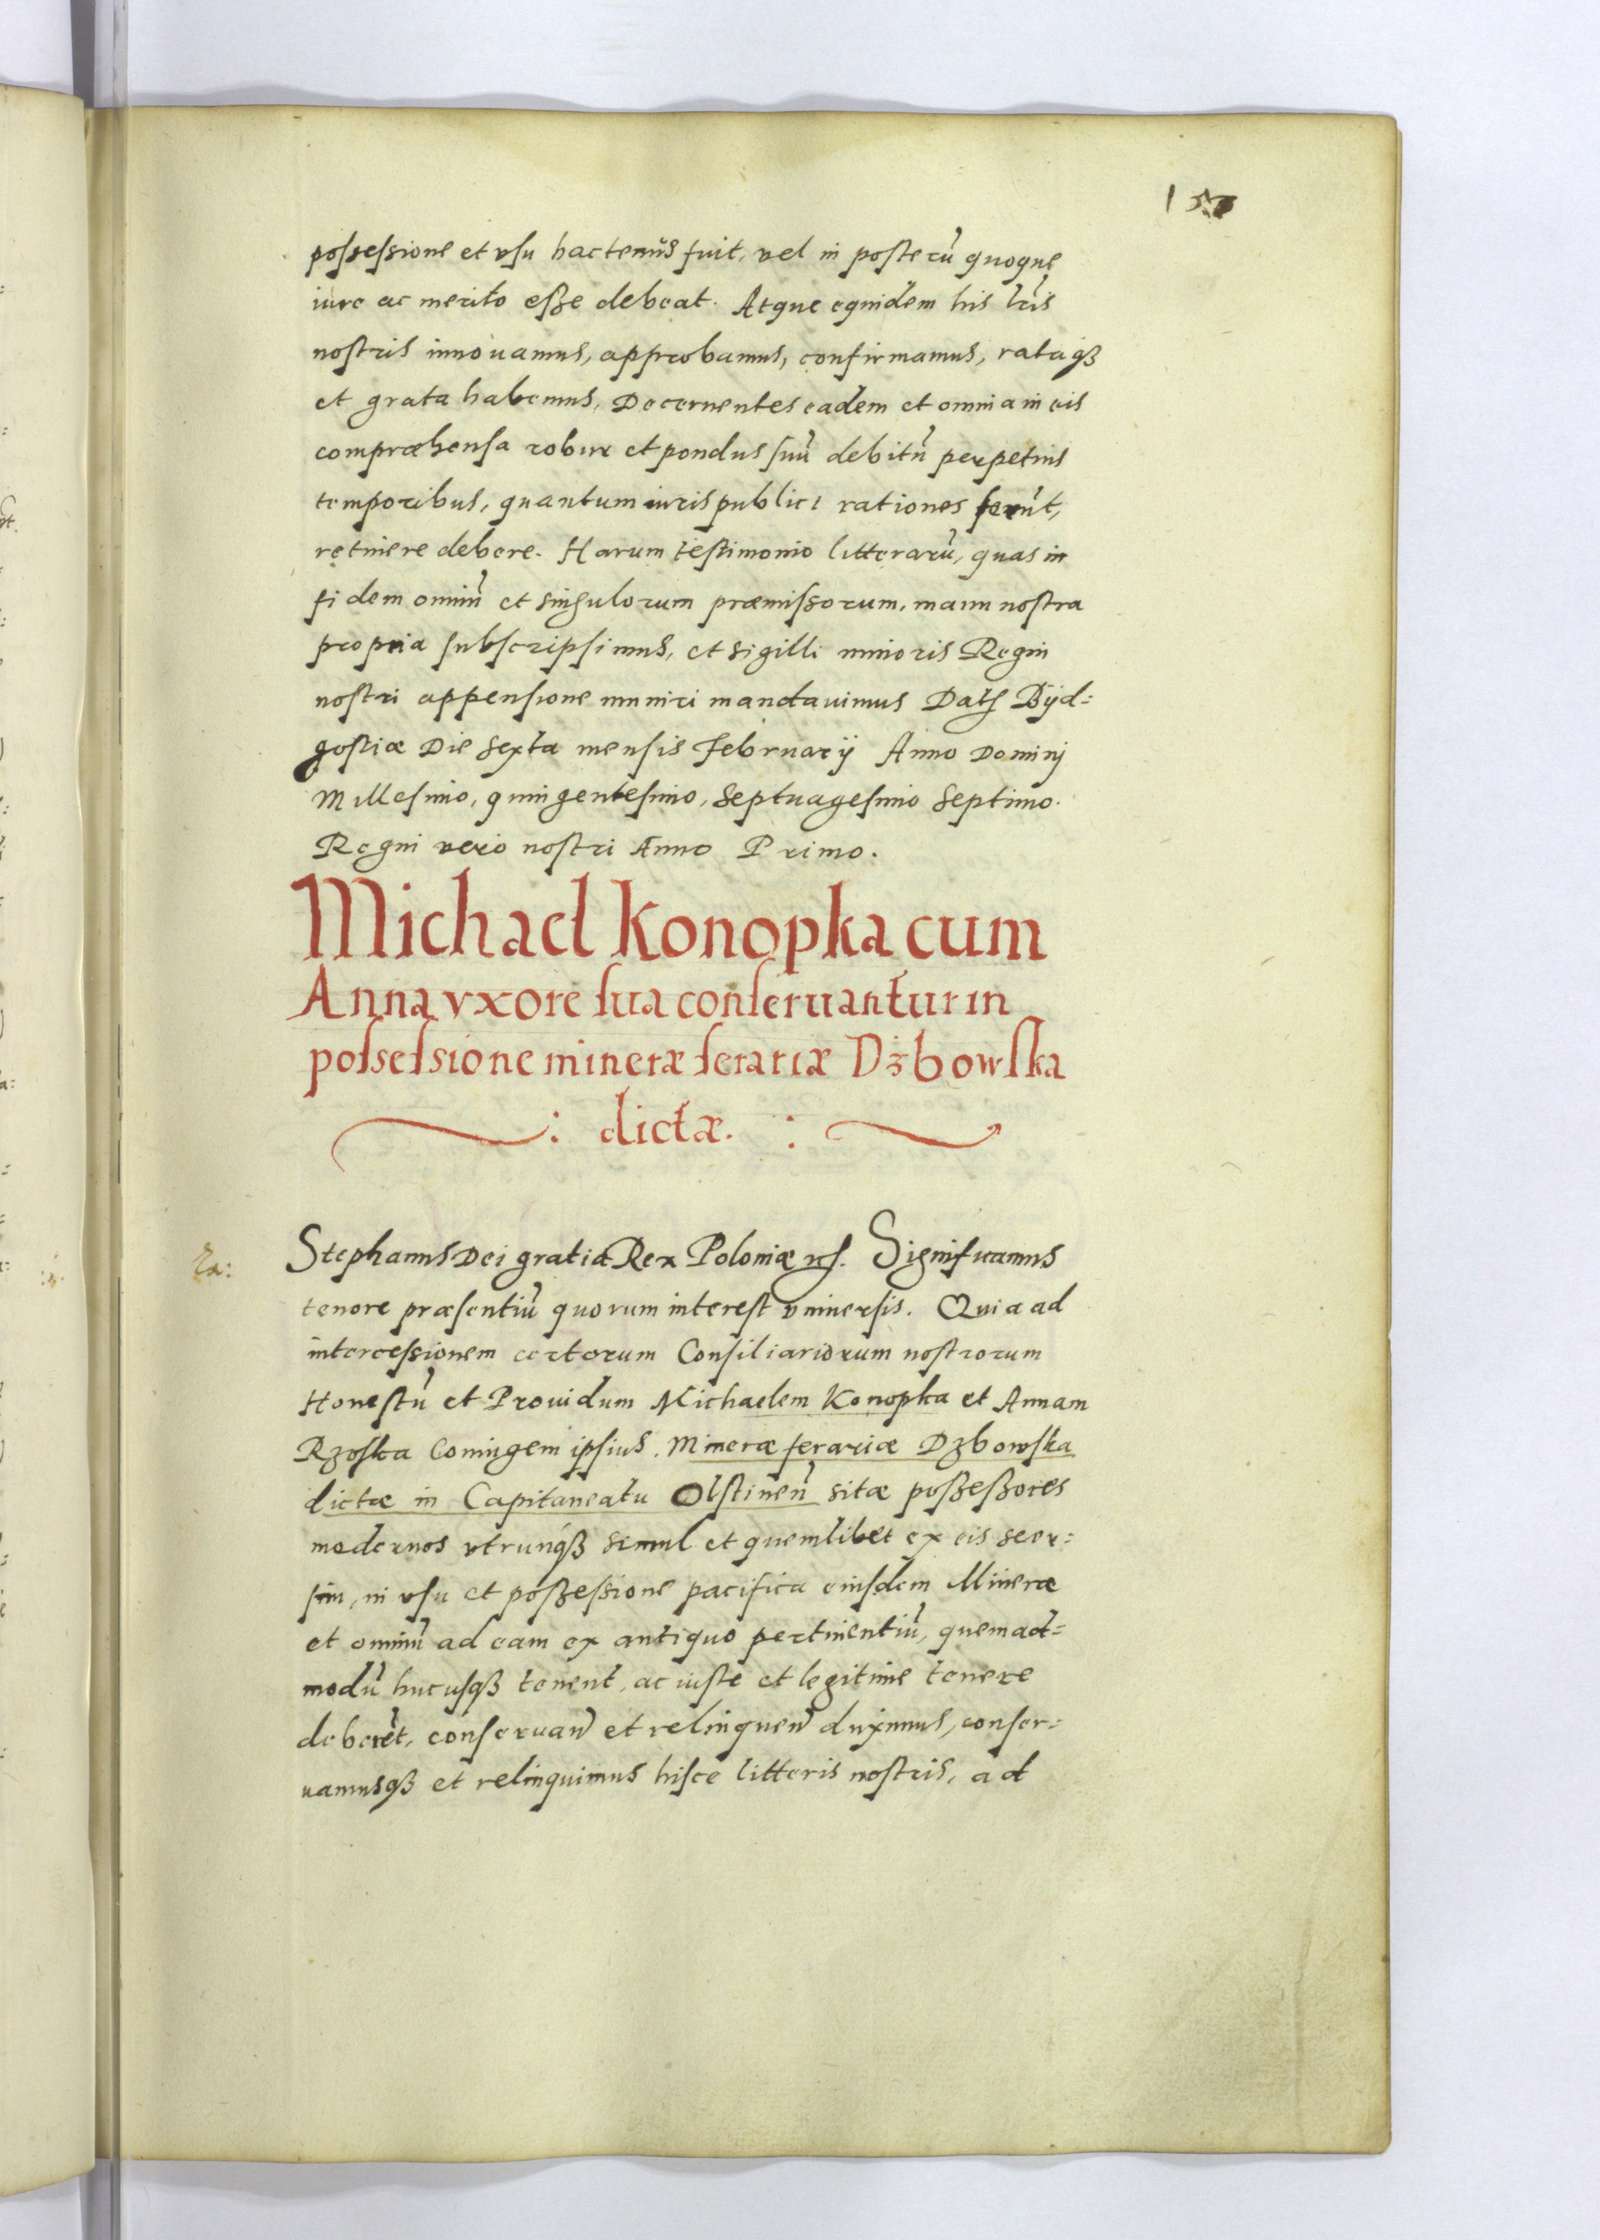 possessione et vsu hactenus fuit, vel in posterũ quoque
iure ac merito esse debeat. Atque equidem his lr̃is
nostris innouamus, approbamus, confirmamus, rataqꝫ
et grata habemus, Decernentes eadem et omnia in eis
compræhensa robur et pondus suũ debitũ perpetuis
temporibus, quantum iuris publici rationes ferũt,
retinere debere. Harum testimonio litterarũ, quas in
fidem omniũ et singulorum præmissorum, manu nostra
propria subscripsimus, et sigilli minoris Regni
nostri appensione muniri mandauimus Datꝭ Bÿd=
gostiæ Die sexta mensis Februarij Anno Dominj
Millesimo, quingentesimo, Septuagesimo Septimo.
Regni vero nostri Anno Primo.
Michael Konopka cum
Anna vxore sua conseruantur in
possessione mineræ ferariæ Dżbowska
: dictæ. :
Ra:
Stephanus Dei gratia Rex Poloniæ ꝛꝭ. Significamus
tenore præsentiũ quorum interest vniuersis. Quia ad
intercessionem certorum Consiliariorum nostrorum
Honestũ et Prouidum Michaelem Konopka et Annam
Rzoska Coniugem ipsius. Mineræ ferariæ Dzbowska
dictæ in Capitaneatu Olstinen̄ sitæ possessores
modernos vtrunqꝫ simul et quemlibet ex eis seor=
sim, in vsu et possessione pacifica eiusdem Mineræ
et omniũ ad eam ex antiquo pertinentiũ, quemad=
modũ hucusqꝫ tenent, ac iuste et legitime tenere
deberẽt, conseruan̄ et relinquen̄ duximus, conser=
uamusqꝫ et relinquimus hisce litteris nostris, ad